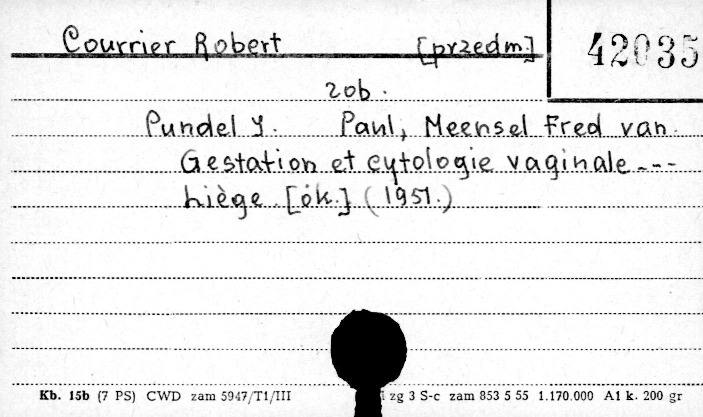 Courrier Robert [przedm.] 42035
zob.
Pundel J. Paul, Meensel Fred van.
Gestation et cytologie vaginale ---
Liège. [ok.] (1951.)
Kb. 15b (7 PS) CWD zam 5947/T1/III zg 3 S-c zam 853 5 55 1.170.000 A1 k. 200 gr